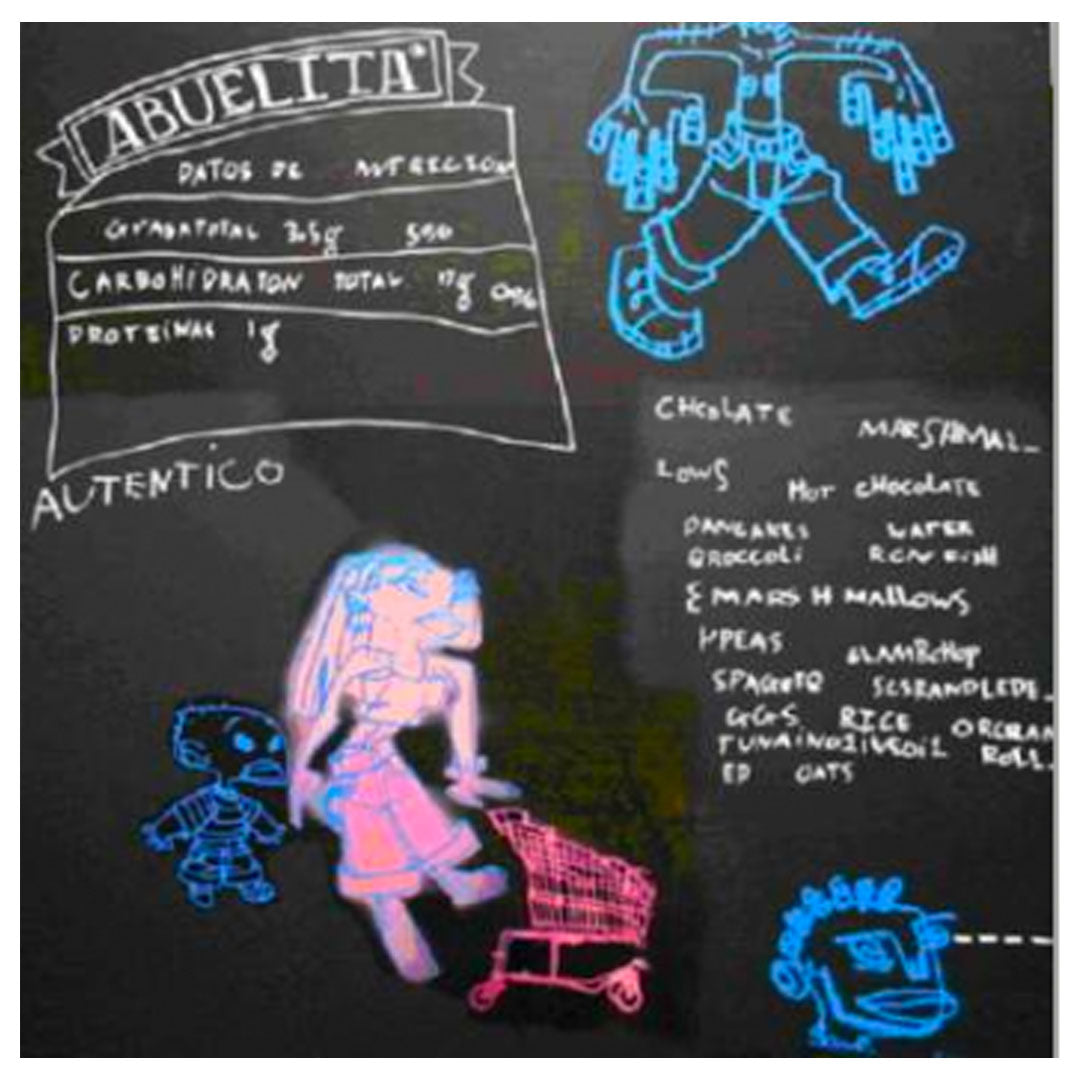 ABUELITA
DATOS DE NUTRECION
GRASATOTAL 3.5g 500
CARBOHIDRATON TOTAL 17g
PROTEINAS 1g
AUTENTICO
CHCOLATE MARSHMAL-
LOWS HOT CHOCOLATE
PANCAKES WATER
BROCCOLI
MARSHMALLOWS
PEAS LAMBCHOP
GGS RICE
TUNAINOLIVEOIL ROLL-
ED OATS